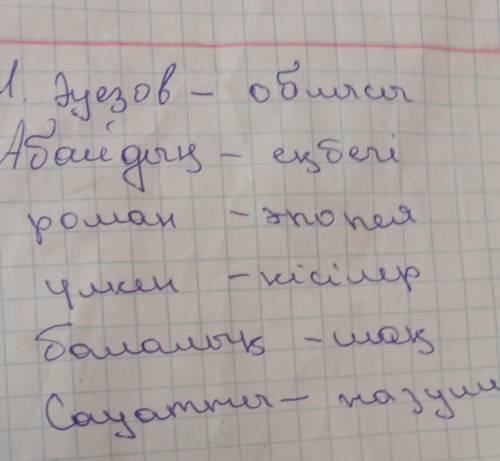 М. Әуезов – облысы
Абайдың – еңбегі
роман – эпопея
үлкен – кісілер
балалық – шақ
Сауатты – жазушы